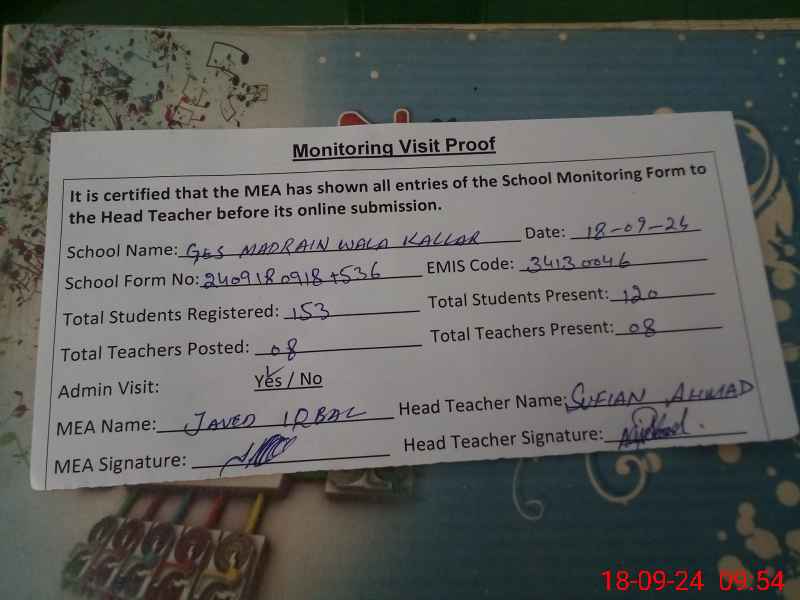 Monitoring Visit Proof
It is certified that the MEA has shown all entries of the School Monitoring Form to
the Head Teacher before its online submission.
School Name: GES MADRAIN WALA KALLAR Date: 18-09-24
School Form No: 2409180918+536 EMIS Code: 34130046
Total Students Registered: 153 Total Students Present: 120
Total Teachers Posted: 08 Total Teachers Present: 08
Admin Visit: Yes / No
MEA Name: JAVED IQBAL Head Teacher Name: SUFIAN AHMAD
MEA Signature: Head Teacher Signature:
18-09-24 09:54